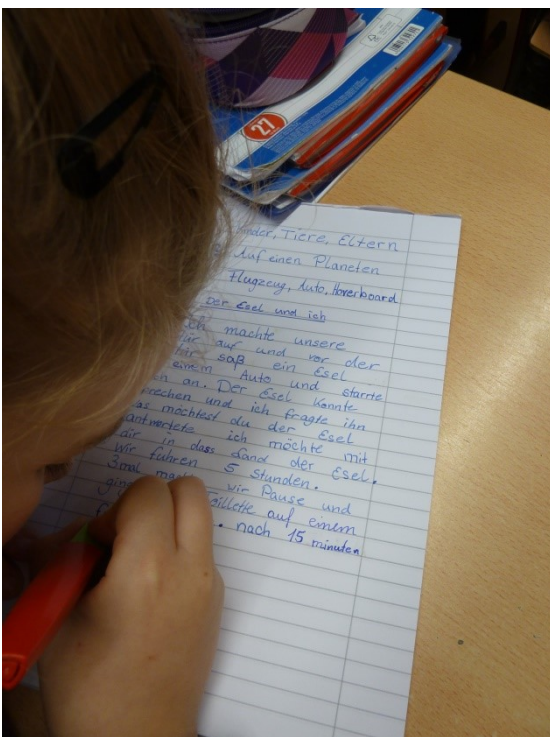 27
Tiere, Eltern
Auf einen Planeten
Flugzeug, Auto, Hoverboard
Der Esel und ich
machte unsere
auf und vor der
saß ein Esel
einem Auto und starrte
an. Der Esel konnte
und ich fragte ihn
möchtest du der Esel
antwortete ich möchte mit
dir in dass Land der Esel.
Wir fuhren 5 Stunden.
3mal wir Pause und
auf einem
nach 15 minuten